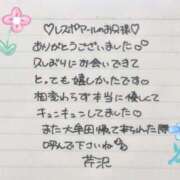 ♡レスポアールのお兄様♡
ありがとうございました○
久しぶりにお会いできて
とっても嬉しかったです♡
相変わらず本当に優しくて
キュンキュンしてました♡
また大牟田帰って来られた際
呼んで下さいね♡
芹沢